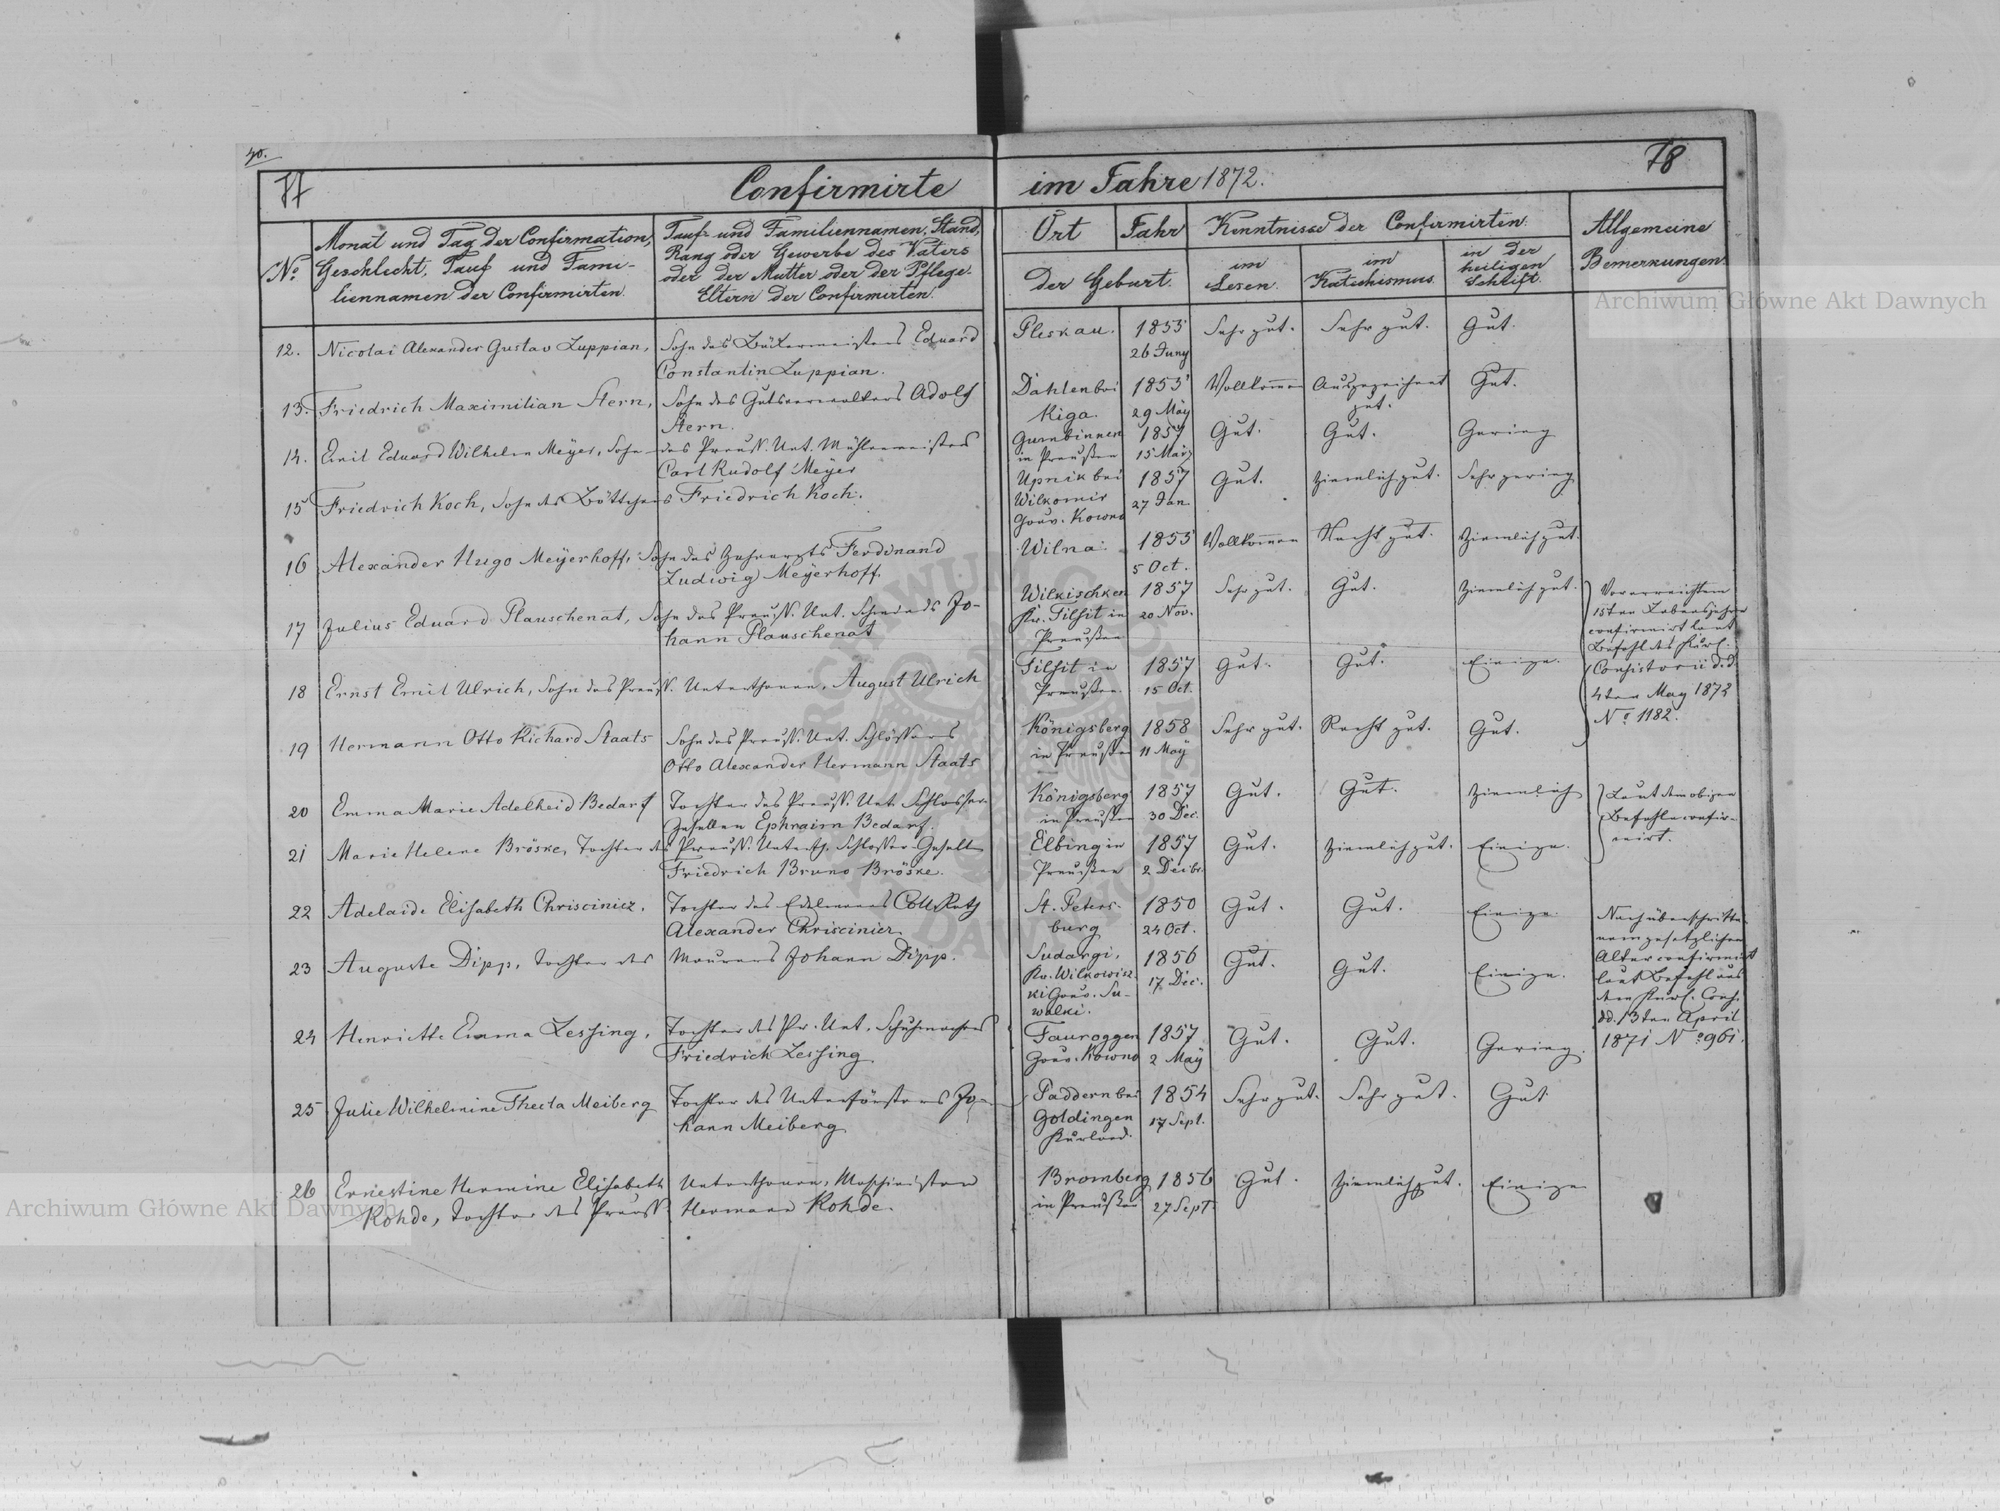 40.
77
Confirmirte im Jahre 1872.
78
No.
Monat und Tag der Confirmation,
Geschlecht, Tauf und Fami-
liennamen der Confirmirten.
Tauf- und Familiennamen, Stand,
Rang oder Gewerbe des Vaters
oder der Mutter oder der Pflege-
Eltern der Confirmirten.
Ort
Jahr
der Geburt.
Kenntnisse der Confirmirten.
im
Lesen.
im
Katechismus.
in der
heiligen
Schrift.
Allgemeine
Bemerkungen.
12. Nicolai Alexander Gustav Luppian, Sohn des Bäckermeisters Eduard
Constantin Luppian.
Pleskau. 1855 Sehr gut. Sehr gut. Gut.
26 Juny
13. Friedrich Maximilian Stern, Sohn des Gutsverwalters Adolf
Stern.
Dahlen bei 1855 Vollkommen Ausgezeichnet Gut.
Riga. 29 Maÿ gut.
14. Emil Eduard Wilhelm Meÿer, Sohn des Preuß. Unt. Mühlenmeisters
Carl Rudolf Meÿer
Gumbinnen 1857 Gut. Gut. Gering
in Preußen 15 März
15 Friedrich Koch, Sohn des Böttchers Friedrich Koch.
Upnik bei 1857 Gut. Ziemlich gut. Sehr gering
Wilkomir 27 Jan.
Gouv. Kowno
16 Alexander Hugo Meÿerhoff, Sohn des Zahnarzts Ferdinand
Ludwig Meÿerhoff.
Wilna. 1855 Vollkommen Recht gut. Ziemlich gut.
5 Oct.
17 Julius Eduard Plauschenat, Sohn des Preuß. Unt. Schmieds Jo-
hann Plauschenat
Wilkischken 1857 Sehr gut. Gut. Ziemlich gut.
Kr. Tilsit in 20 Nov.
Preußen
Vor erreichtem
15ten Lebensjahre
confirmirt laut
Befehl des Kurl.
Consistorii d.d.
4ten May 1872
No. 1182.
18 Ernst Emil Ulrich, Sohn des Preuß. Unterthanen, August Ulrich
Tilsit in 1857 Gut. Gut. Einige.
Preußen. 15 Oct.
19 Hermann Otto Richard Staats Sohn des Preuß. Unt. Schlossers
Otto Alexander Hermann Staats
Königsberg 1858 Sehr gut. Recht gut. Gut.
in Preußen 11 Maÿ
20 Emma Marie Adelheid Bedarf Tochter des Preuß. Unt. Schlosser-
Gesellen Ephraim Bedarf.
Königsberg 1857 Gut. Gut. Ziemlich
in Preußen 30 Dec.
Laut dem obigen
Befehle confir-
mirt.
21 Marie Helene Bröske, Tochter des Preuß. Unterth. Schlosser-Gesellen
Friedrich Bruno Bröske.
Elbing in 1857 Gut. Ziemlich gut. Einige.
Preußen 2 Decbr.
22 Adelaide Elisabeth Chriscinicz. Tochter des Edelmanns Coll. Raths
Alexander Chriscinicz.
St. Peters- 1850 Gut. Gut. Einige
burg 24 Oct.
Nach überschritte-
nem gesetzlichen
Alter confirmirt
laut Befehl aus
dem Kurl. Cons.
dd. 13ten April
1871 No. 961.
23 Auguste Dipp, Tochter des Maurers Johann Dipp.
Sudargi, 1856 Gut. Gut. Einige.
Kr. Wilkowisz- 17 Dec.
ki Gouv. Su-
walki.
24 Henriette Emma Lessing, Tochter des Pr. Unt. Schuhmachers
Friedrich Lessing
Tauroggen 1857 Gut. Gut. Gering.
Gouv. Kowno 2 Maÿ
25 Julie Wilhelmine Thecla Meiberg Tochter des Unterförsters Jo-
hann Meiberg
Paddern bei 1854 Sehr gut. Sehr gut. Gut.
Goldingen 17 Sept.
Kurland.
26 Ernestine Hermine Elisabeth Unterthanen, Maschinisten
Rohde, Tochter des Preuß. Hermann Rohde.
Bromberg 1856 Gut. Ziemlich gut. Einige
in Preußen 27 Sept.
Archiwum Główne Akt Dawnych
Archiwum Główne Akt Dawnych